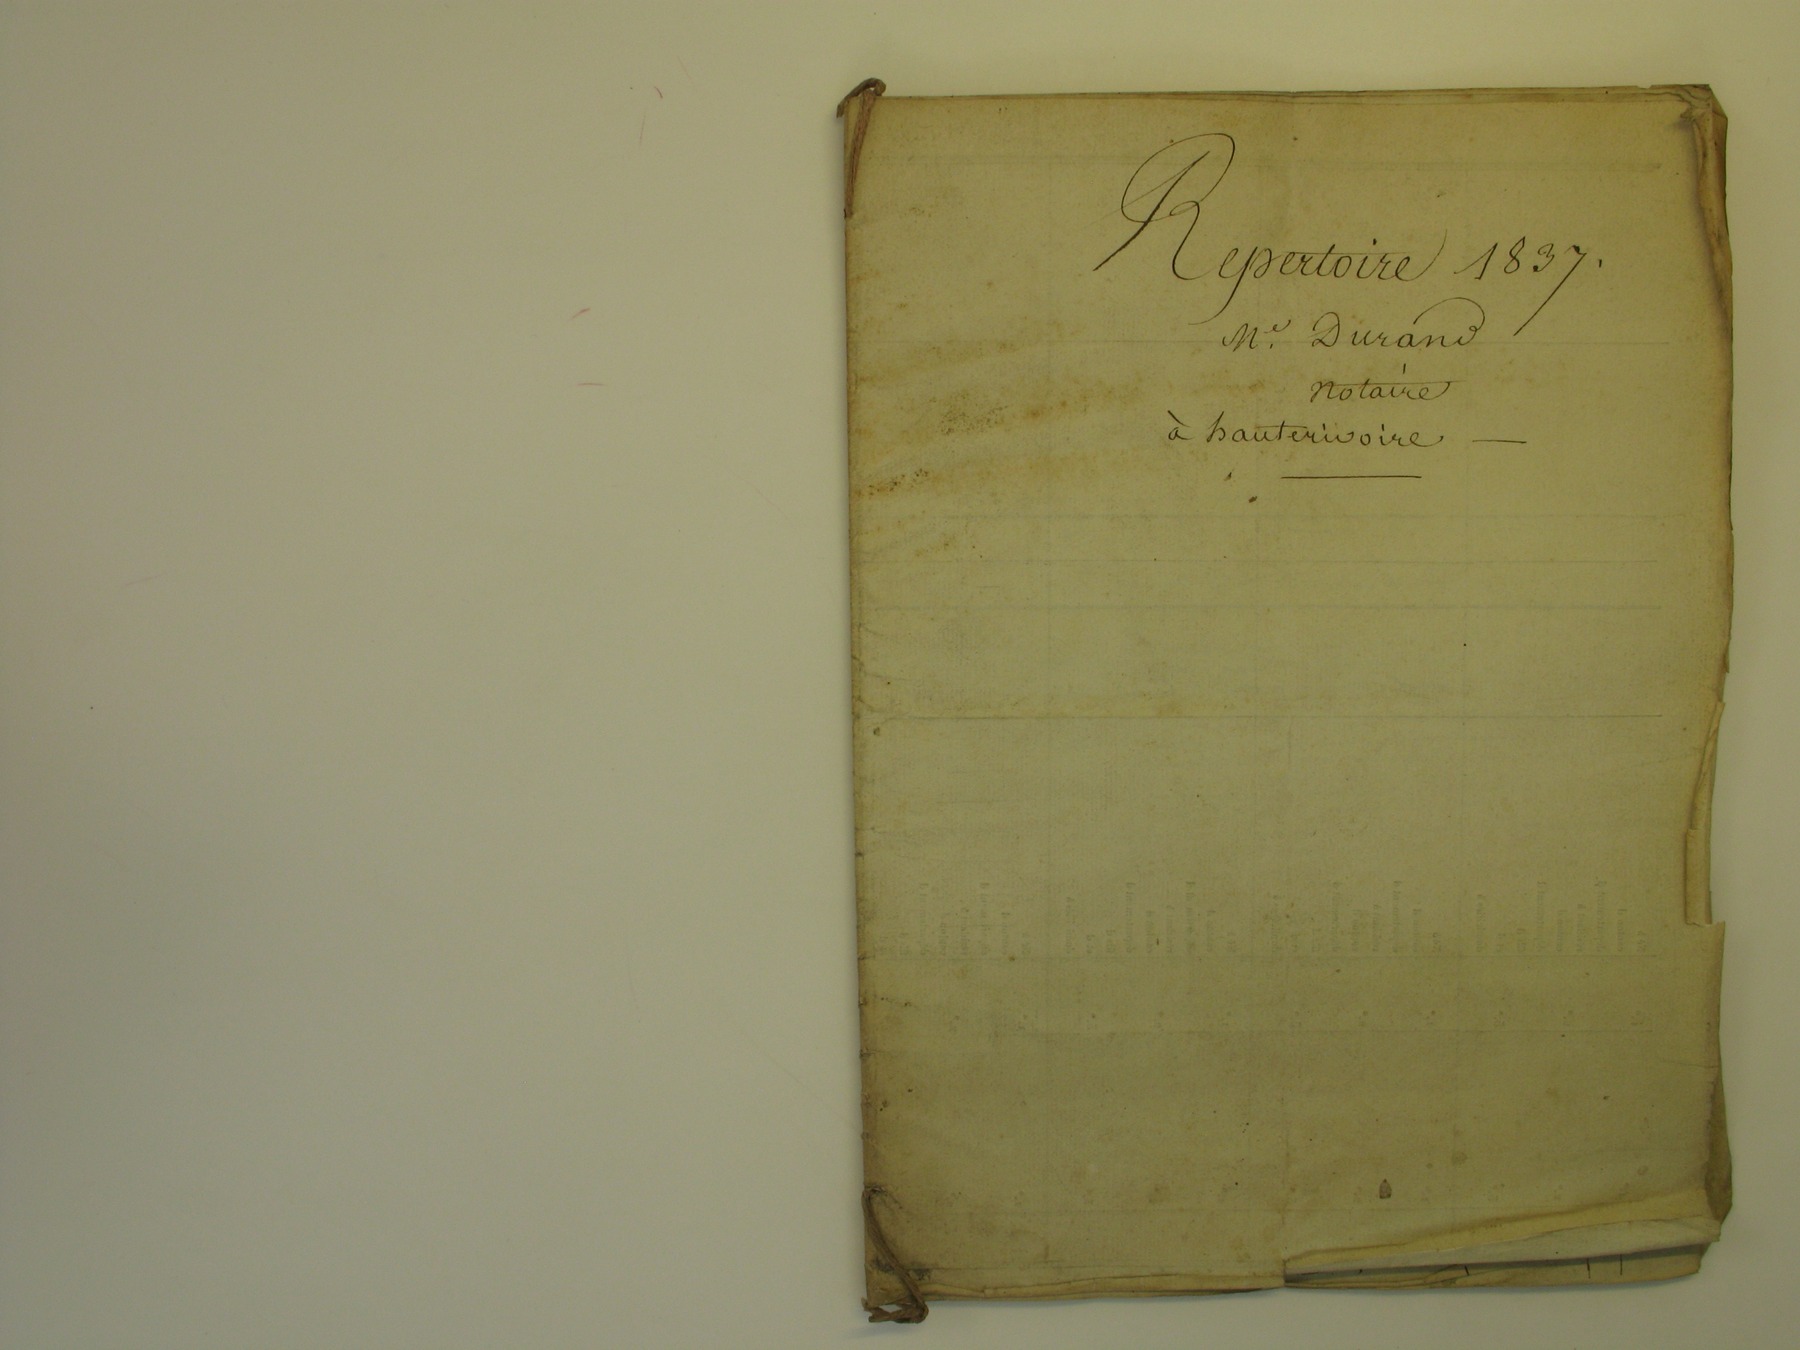 Repertoire 1837.
Me. Durand
notaire
à hauterivoire —